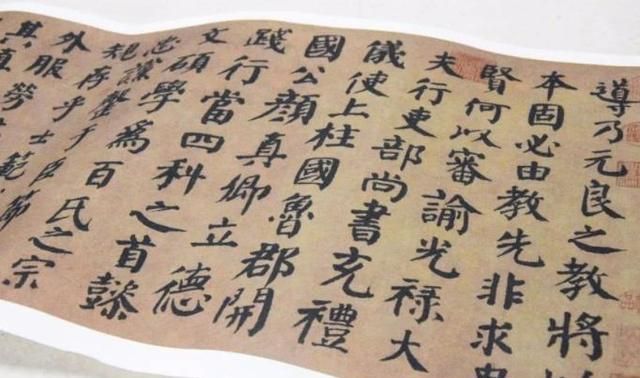 導乃元良之教將
本固必由教先非求
賢何以審諭光祿大
夫行吏部尚書充禮
儀使上柱國魯郡開
國公顏真卿立德
踐行當四科之首懿
文碩學為百氏之宗
忠讜罄于臣節
規存乎士範
外服勞
其直